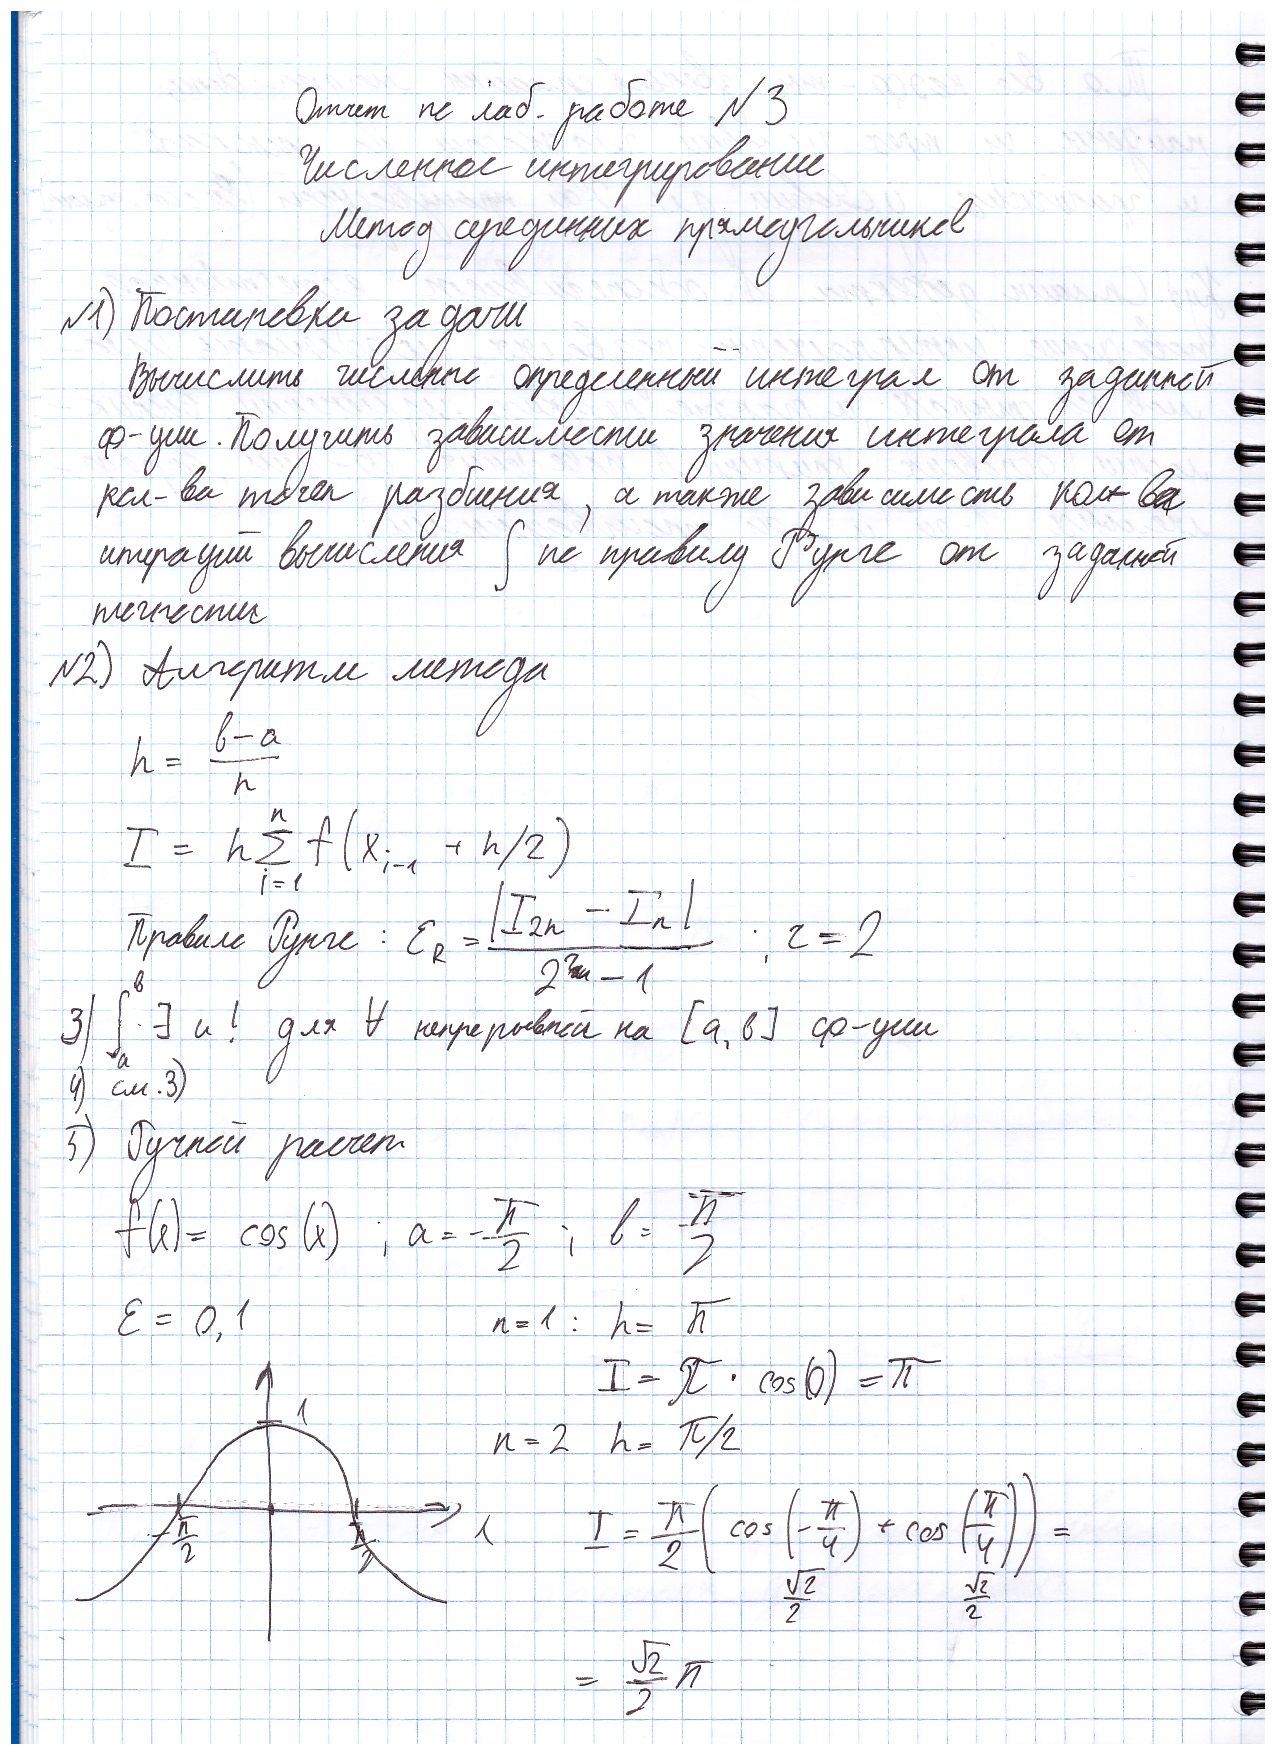 Отчет по лаб. работе №3
Численное интегрирование
Метод серединных прямоугольников
№1) Постановка задачи
Вычислить численно определенный интеграл от заданной
ф-ции. Получить зависимости значения интеграла от
кол-ва точек разбиения, а также зависимость кол-ва
итераций вычисления ∫ по правилу Рунге от заданной
точности
№2) Алгоритм метода
h = (b-a)/n
I = h∑_{i=1}^{n} f(x_{i-1} + h/2)
Правило Рунге: ε_R = |I_{2n} - I_n| / (2^r - 1) ; r = 2
3) ∫_a^b ∃ и! для ∀ непрерывной на [a,b] ф-ции
4) см.3)
5) Ручной расчет
f(x) = cos(x) ; a = -π/2 ; b = π/2
ε = 0,1 n=1: h = π
I = π · cos(0) = π
n=2 h = π/2
I = π/2 (cos(-π/4) + cos(π/4)) =
√2/2 √2/2
= √2/2 π
1
-π/2 π/2